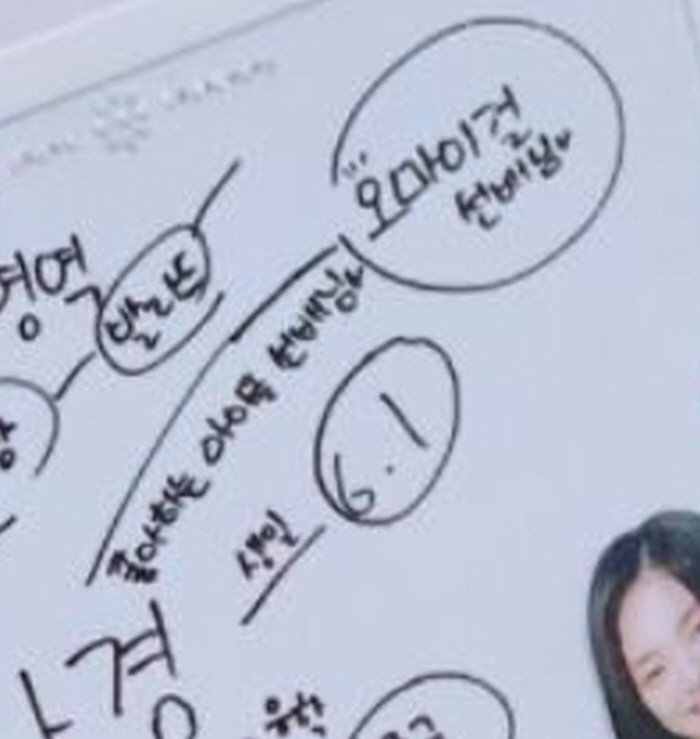 오마이걸
선배님♥
영역
발라드
좋아하는 아이돌 선배님
6.1
생일
경